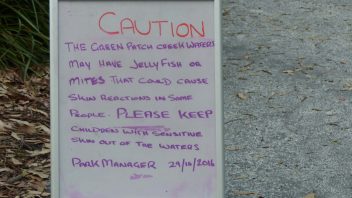 CAUTION
THE GREEN PATCH CREEK WATERS
MAY HAVE JELLYFISH OR
MITES THAT COULD CAUSE
SKIN REACTIONS IN SOME
PEOPLE. PLEASE KEEP
CHILDREN WITH SENSITIVE
SKIN OUT OF THE WATERS
PARK MANAGER 29/10/2016